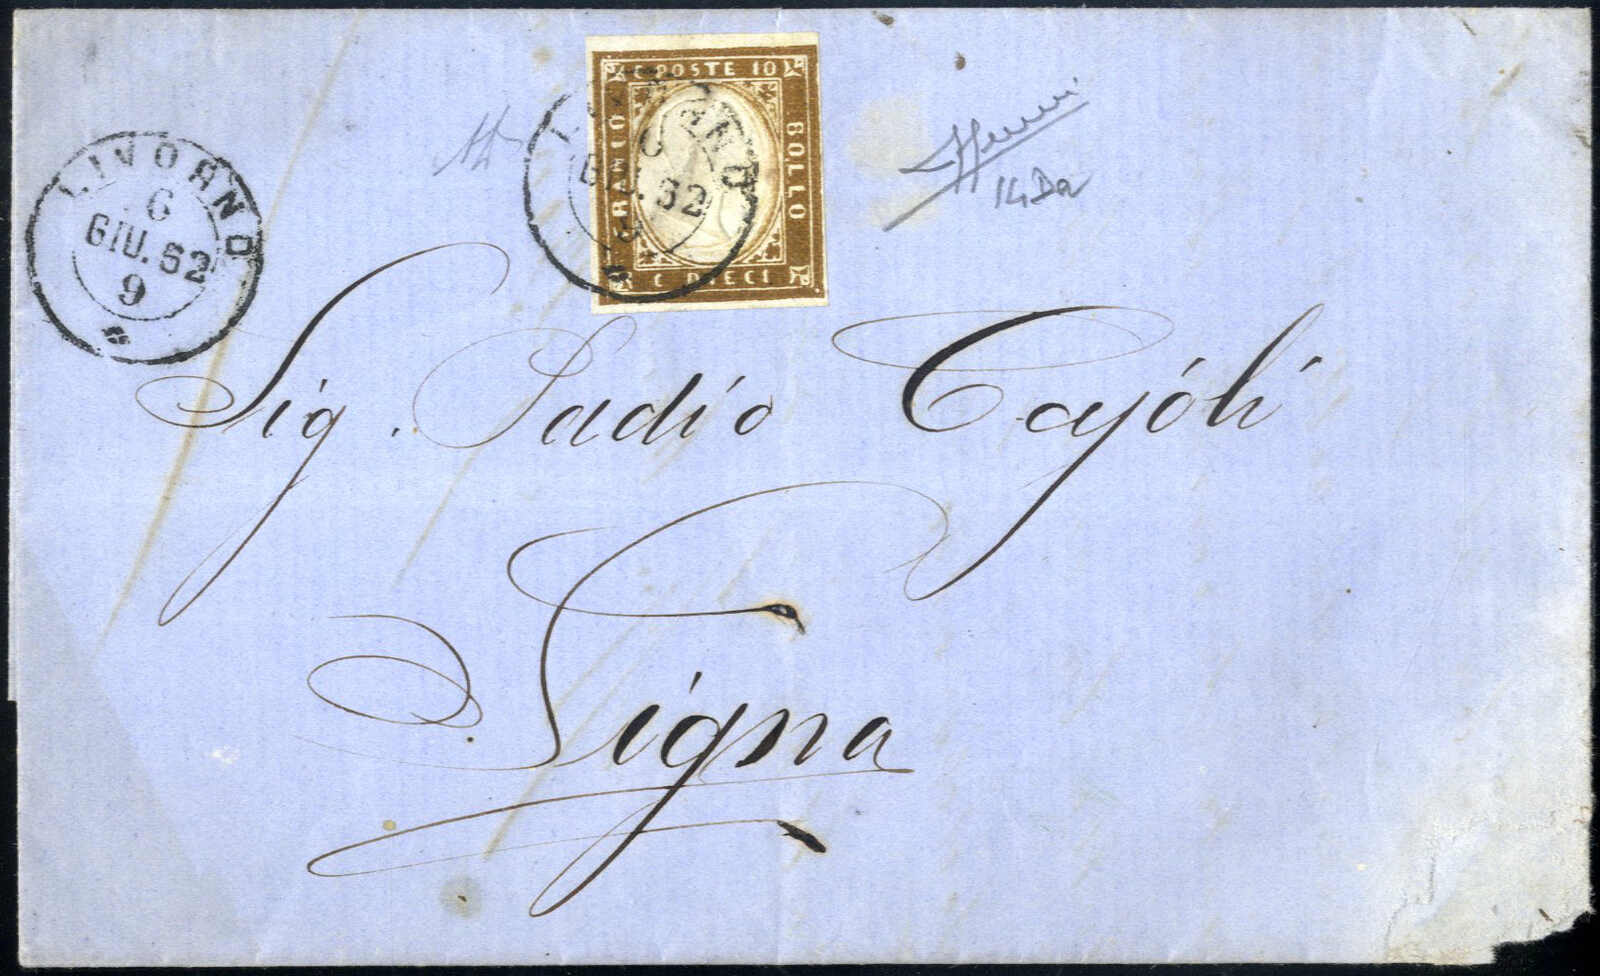 C POSTE 10
FRANCO
BOLLO
C DIECI
LIVORNO
6
GIU. 62
9
LIVORNO
6
GIU. 62
9
14Da
Sig. Sadio Cajóli
Signa